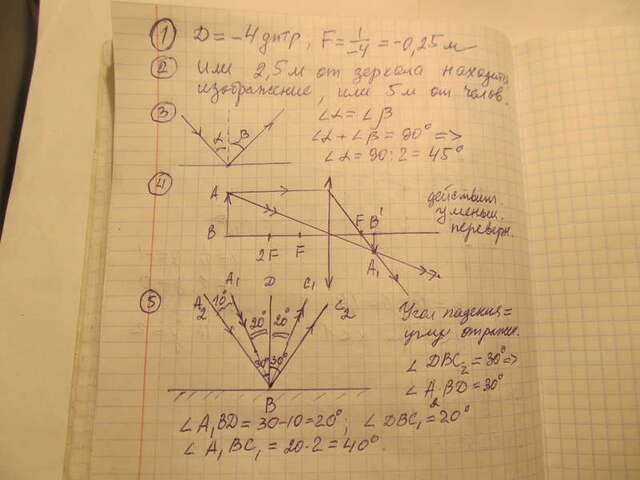 1 D = -4 дптр, F = 1/-4 = -0,25 м
2 или 2,5 м от зеркала находится
изображение, или 5 м от челов.
3 α β
∠α = ∠β
∠α + ∠β = 90° =>
∠α = 90:2 = 45°
4 A B 2F F F B' A₁
действит.
уменьш.
переверн.
5 A₂ 10° A₁ D C₁ C₂
20° 20°
30° 30°
B
Угол падения =
углу отражен.
∠DBC₂ = 30° =>
∠A₂BD = 30°
∠A₁BD = 30-10 = 20°; ∠DBC₁ = 20°
∠A₁BC₁ = 20·2 = 40°.